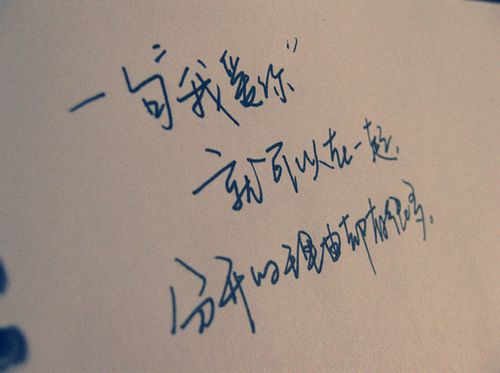 一句“我爱你”
就可以在一起.
分开的理由却有很多.